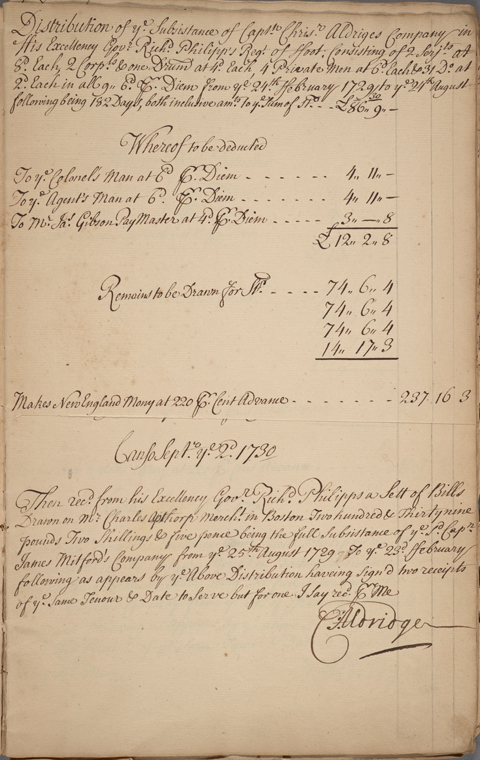 Distribution of yᵉ Subsistance of Captⁿ Chrisʳ Aldriges Company in
His Excellency Govʳ Richᵈ Philipps Regᵗ of ffoot Consisting of 2 Serjᵗˢ at
8ᵈ Each, 2 Corpˡˢ & one Drum at 4ᵈ Each, 4 Private Men at 6ᵈ Each & 31 Dº at
2ᵈ Each in all 9ˢ 6ᵈ ₽ Diem from yᵉ 24ᵗʰ ffebruary 1729 to yᵉ 24ᵗʰ August
following being 182 Days, both inclusive amᵗˢ to yᵉ Sum of Stᵍ - - £86 „ 9 „ —
Whereof to be deducted
To yᵉ Colonel's Man at 6ᵈ ₽ Diem - - - - - - 4 „ 11 „ —
To yᵉ Agent's Man at 6ᵈ ₽ Diem - - - - - - 4 „ 11 „ —
To Mʳ Jaˢ Gibson Pay Master at 4ᵈ ₽ Diem - - - - - 3 „ — „ 8
£ 12 „ 2 „ 8
Remains to be Drawn for Stᵍ - - - - - 74 „ 6 „ 4
74 „ 6 „ 4
74 „ 6 „ 4
14 „ 17 „ 3
Makes New England Mony at 220 ₽ Cent Advance - - - - - - - - 237 16 3
Canso Septʳ yᵉ 2ᵈ 1730
Then recᵈ from his Excellency Govʳ Richᵈ Philipps a Sett of Bills
Drawn on Mʳ Charles Apthorp Merchᵗ in Boston Two hundred & Thirty nine
pounds Two Shillings & five pence being the full Subsistance of yᵉ Sᵈ Capᵗⁿ
James Mitford's Company from yᵉ 25ᵗʰ August 1729 To yᵉ 23ᵈ ffebruary
following as appears by yᵉ Above Distribution haveing sign'd two receipts
of yᵉ Same Tenour & Date to Serve but for one I say recᵈ ₽ Me
C Aldridge